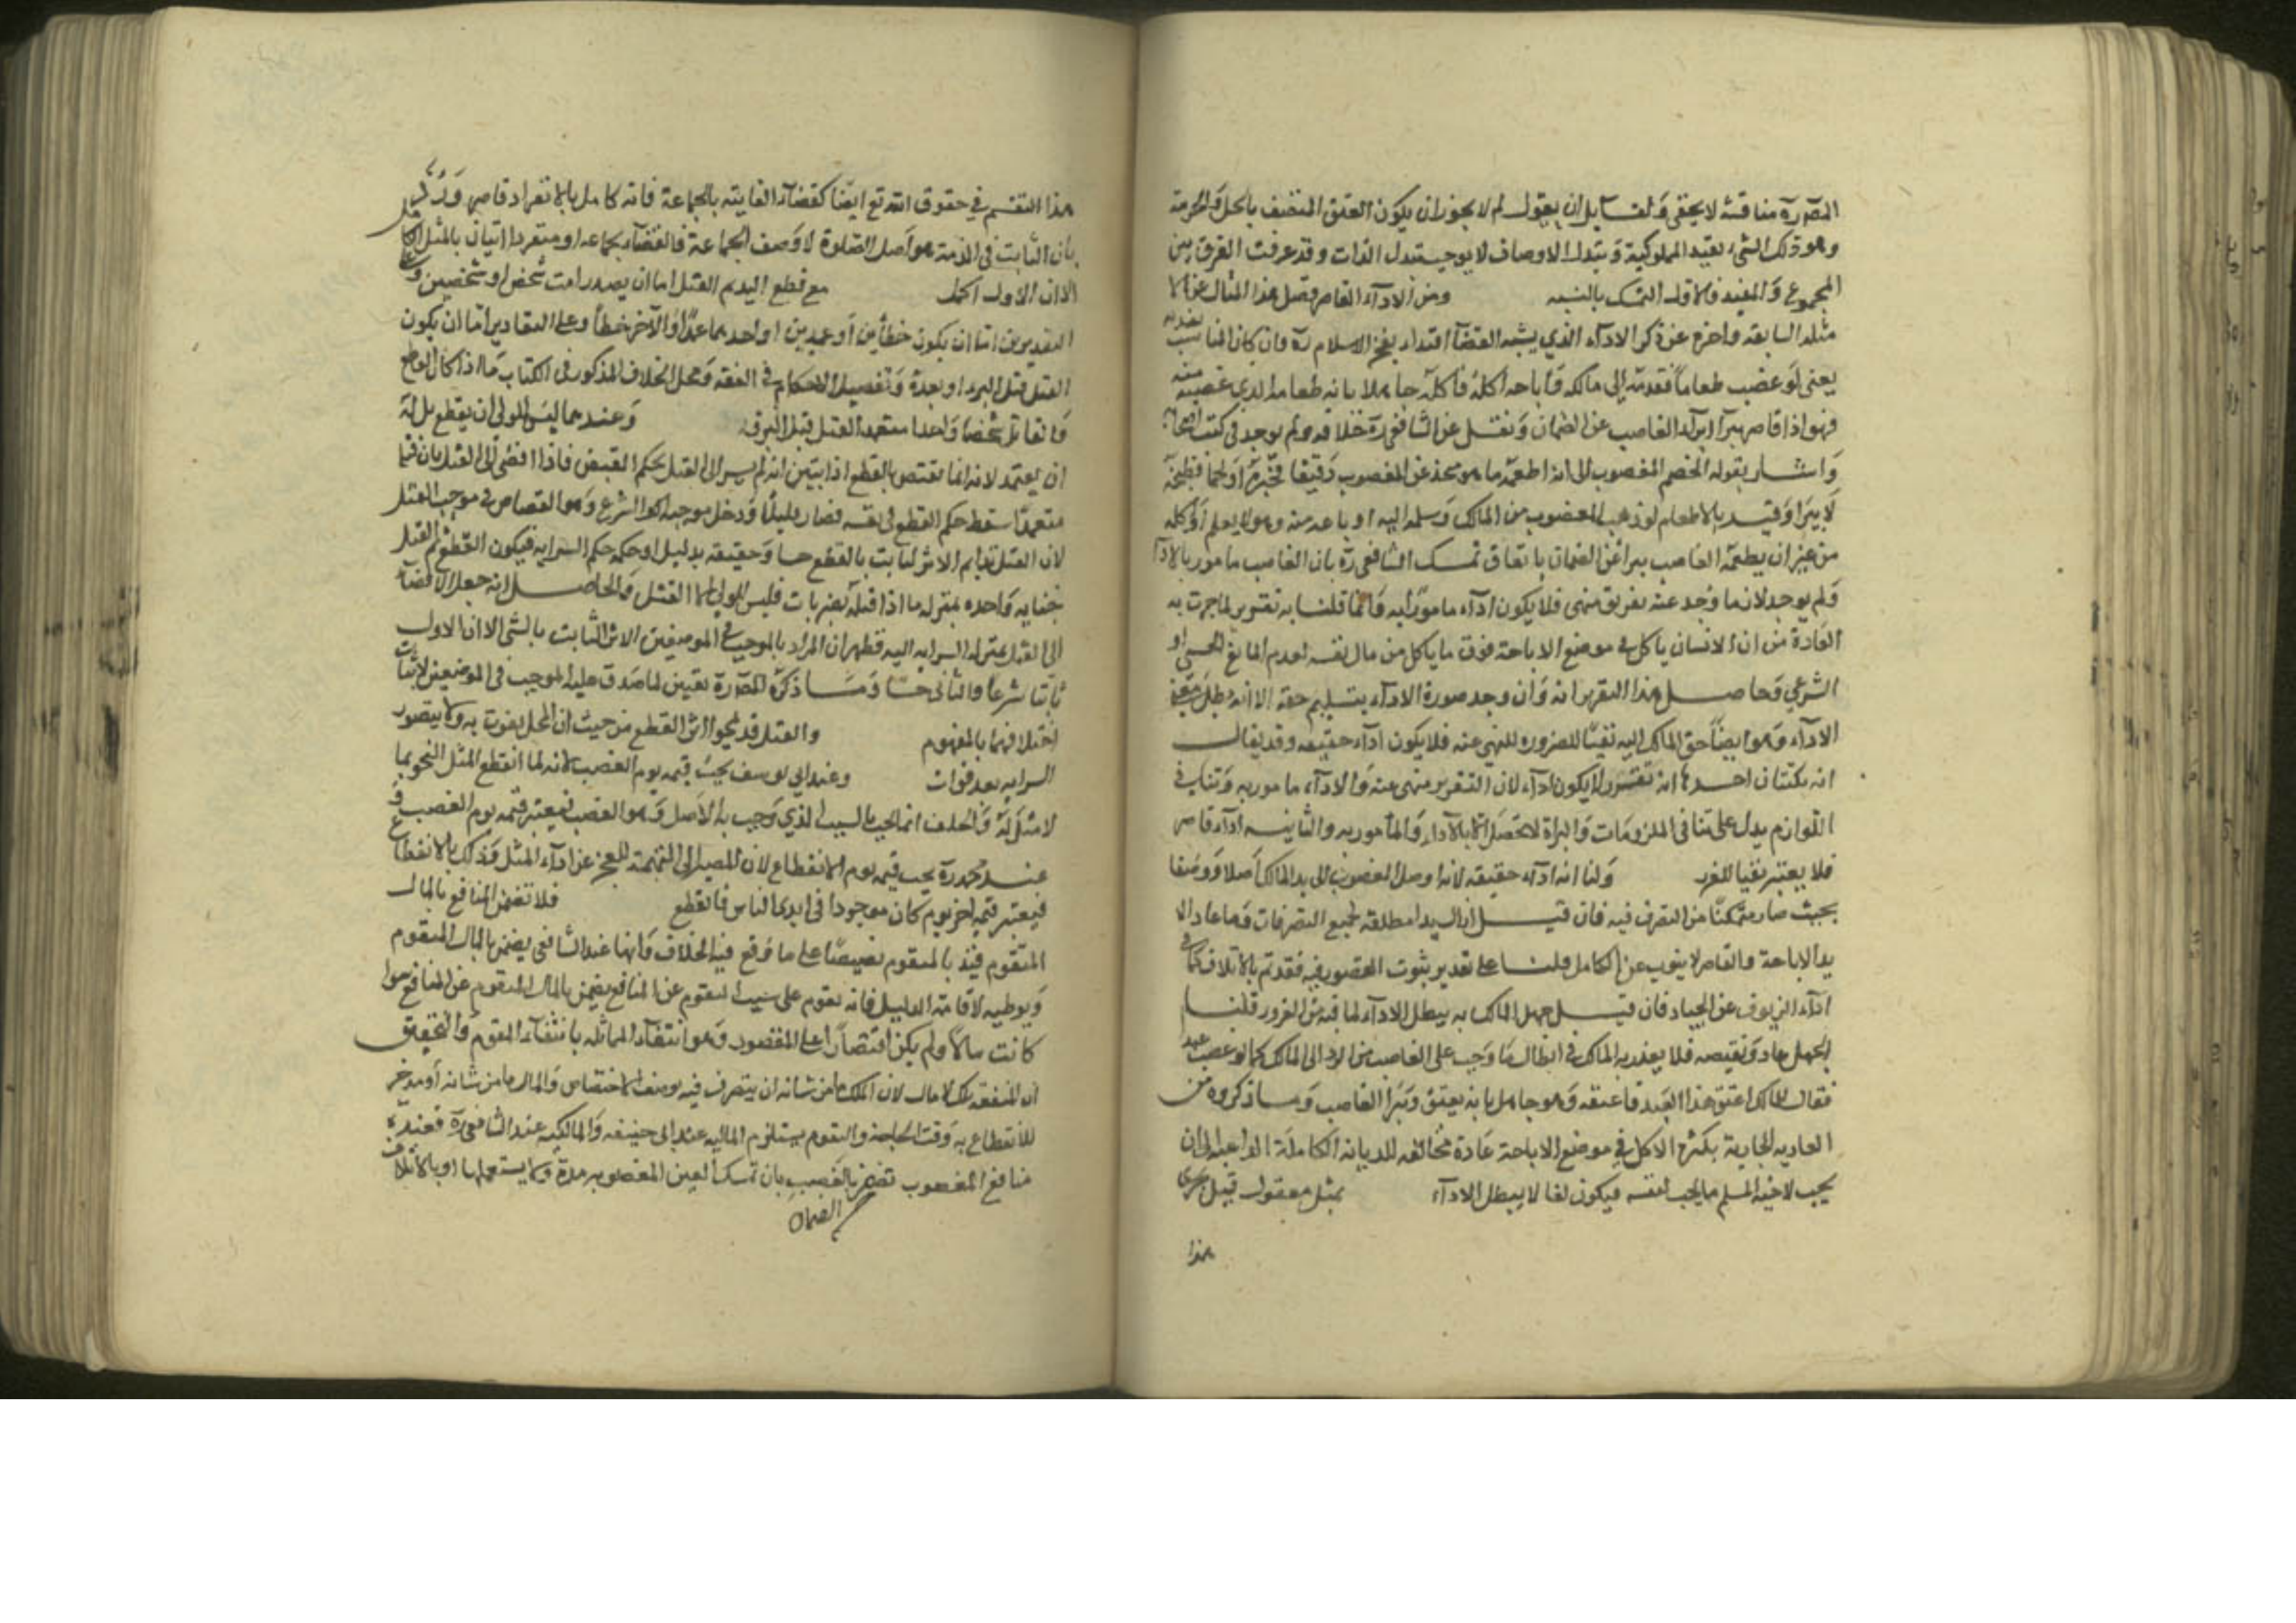 المص رة مناقشة لا يخفى ولقايل ان يقول لم لا يجوز ان يكون العلق المتصف بالحل والحرمة
وهو ذلك الشيء بقيد المملوكية وتبدل الاوصاف لا يوجب تبدل الذات وقد عرفت الفرق بين
المجموع والمقيد فالاولى التمسك بالسنة ومن الاداء القاصر فصل هذا المثال عن الا
مثلة السابقة واخره عن ذكر الاداء الذي يشبه القضا اقتداء بفخر الاسلام رة وان كان المناسب تقديمه
يعنى لو غصب طعاما فقدمه الى مالكه واباحه اكله فاكله جاهلا بانه طعامه الذي غصبه منه
فهو اذا قاصر يبرأ به الغاصب عن الضمان ونقل عن الشافعي رة خلافه ولم يوجد في كتب اصحابه
واشار بقوله اطعم المغصوب الى انه اطعمه ما هو متخذ عن المغصوب دقيقا فخبزه او لحما فطبخه
لا يبرأ وقيد بالاطعام لو ذهب المغصوب من المالك وسلمه اليه او باعه منه وهو لا يعلم او اكله
من غير ان يطعمه الغاصب يبرأ عن الضمان باتفاق تمسك الشافعي رة بان الغاصب مامور بالادا
ولم يوجد لان ما وجد عنه تغرير منهى فلا يكون اداء مامورا به وانما قلنا به تغرير لما جرت به
العادة من ان الانسان ياكل في موضع الاباحة فوق ما ياكل من مال نفسه لعدم المانع الحسي او
الشرعي وحاصل هذا التقرير انه وان وجد صورة الاداء بتسليم حقه الا انه بطل معنى
الاداء وهو ايضا حق المالك اليه نفيا للغرور المنهى عنه فلا يكون اداء حقيقة وقد يقال
انه نكتتان احدها انه تغرير لا يكون اداء لان التغرير منهى عنه والاداء مامور به وتنافي
اللوازم يدل على تنافي الملزومات والبراة لا تحصل الا بالاداء والمأمور به والثانية اداء قاصر
فلا يعتبر نفيا للغرر ولنا انه اداء حقيقة لانه اوصل المغصوب الى يد المالك اصلا ووصفا
بحيث صار متمكنا من التصرف فيه فان قيل ازال يدا مطلقة لجميع التصرفات وما عاد الا
يد الاباحة والقاصر لا ينوب عن الكامل قلنا على تقدير ثبوت القصور فيه فقد تم بالاتلاف كما في
اداء الزيوف عن الجياد فان قيل جهل المالك به يبطل الاداء لما فيه من الغرور قلنا
الجهل عار ونقيصة فلا يعذر به المالك في ابطال ما وجب على الغاصب من الرد الى المالك كما لو غصب عبدا
فقال للمالك اعتق هذا العبد فاعتقه وهو جاهل بانه يعتق ويبرأ الغاصب وما ذكروه من
العادية الجارية بكثرة الاكل في موضع الاباحة عادة مخالفة للديانة الكاملة الداعية الى ان
يحب لاخيه المسلم ما يحب لنفسه فيكون لغا لا يبطل الاداء بمثل معقول قيل يجري
هذا
هذا التقسيم في حقوق الله تع ايضا كقضاء الفايتة بالجماعة فانه كامل بالانفراد قاصر ورد
بان الثابت في الذمة هو اصل الصلوة لا وصف الجماعة فالقضاء بجماعة او منفردا اتيان بالمثل الكامل
الا ان الاول اكمل مع قطع اليد ثم القتل اما ان يصدرا من شخص او شخصين وعلى
التقديرين اما ان يكون خطأين او عمدين او احدهما عمدا والآخر خطأ وعلى التقادير اما ان يكون
القتل قبل البرء او بعده وتفصيل الاحكام في الفقه ومحل الخلاف المذكور في الكتاب ما اذا كان القاطع
والقاتل شخصا واحدا متعمدا القتل قبل البرء وعندهما ليس للولى ان يقطع بل له
ان يقتل لانه انما يقتص بالقطع اذا تبين انه لم يسر الى القتل بحكم القبض فاذا افضى الى القتل بان قتله
متعمدا سقط حكم القطع في نفسه فصار قتلا ودخل موجبه الشرع وهو القصاص في موجب القتل
لان القتل اتم الاثر الثابت بالقطع حسا وحقيقة بدليل ان حكمه حكم السراية فيكون القطع ثم القتل
جناية واحدة بمنزلة ما اذا قتله بضربات فليس للولى الا القتل والحاصل انه جعل الافضاء
الى القتل بمنزلة السراية اليه فظهر ان المراد بالموجب في الموضعين الاثر الثابت بالشئ الا ان الاول
ثابتا شرعا والثانى حسا وما ذكره المص رة تعيين لما صدق عليه الموجب في الموضعين لا اثبات
اختلافهما بالمفهوم والقتل قد يمحوا اثر القطع من حيث ان المحل يفوت به ولا يتصور
السراية بعد فوات وعند ابي يوسف يجب قيمة يوم الغصب لانه لما انقطع المثل التحق بما
لا مثل له والخلف انما يجب بالسبب الذي وجب به الاصل وهو الغصب فيعتبر قيمة يوم الغصب و
عند محمد رة يجب قيمة يوم الانقطاع لان المصير الى القيمة للعجز عن اداء المثل وذلك بالانقطاع
فيعتبر قيمة اخر يوم كان موجودا في ايدى الناس فانقطع فلا تضمن المنافع بالمال
المتقوم قيد بالمتقوم تنصيصا على ما وقع فيه الخلاف وانها عند الشافعي يضمن بالمال المتقوم
وتوطية لاقامة الدليل فانه يقوم على سلب التقوم عن المنافع يضمن بالمال المتقوم عن المنافع سوا
كانت مالا ولم يكن اقتصارا على المقصود وهو انتفاء المماثلة بانتفاء التقوم والتحقيق
ان المنفعة ملك لا مال لان الملك ما من شانه ان يتصرف فيه بوصف الاختصاص والمال ما من شانه ان يدخر
للانتفاع به وقت الحاجة والتقوم يستلزم المالية عند ابى حنيفة والمالكية عند الشافعى رة فعنده
منافع المغصوب تضمن بالغصب بان تمسك العين المغصوبة مدة ولا يستعملها او بالاتلاف
الضمان